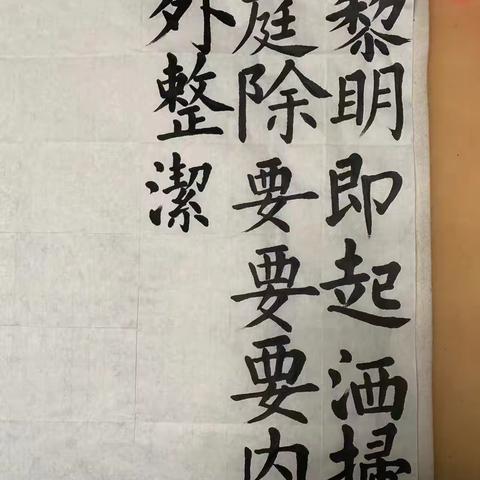 黎明即起洒掃
庭除要要要内
外整潔